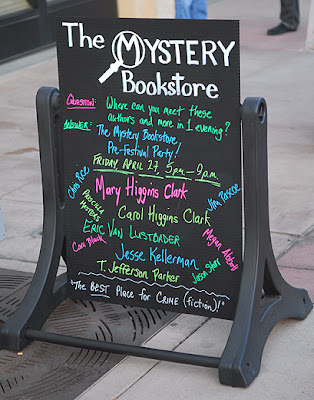 The MYSTERY
Bookstore
QUESTION: Where can you meet these
authors and more in 1 evening?
ANSWER: The Mystery Bookstore
Pre-Festival Party!
FRIDAY, APRIL 27, 5pm-9pm
Chris Rice
Mary Higgins Clark
Jim Pascoe
Carol Higgins Clark
ERIC VAN LUSTBADER
Cara Black
Megan Abbott
Jesse Kellerman
T. Jefferson Parker
Jason Starr
"The BEST Place for CRIME (fiction)!"